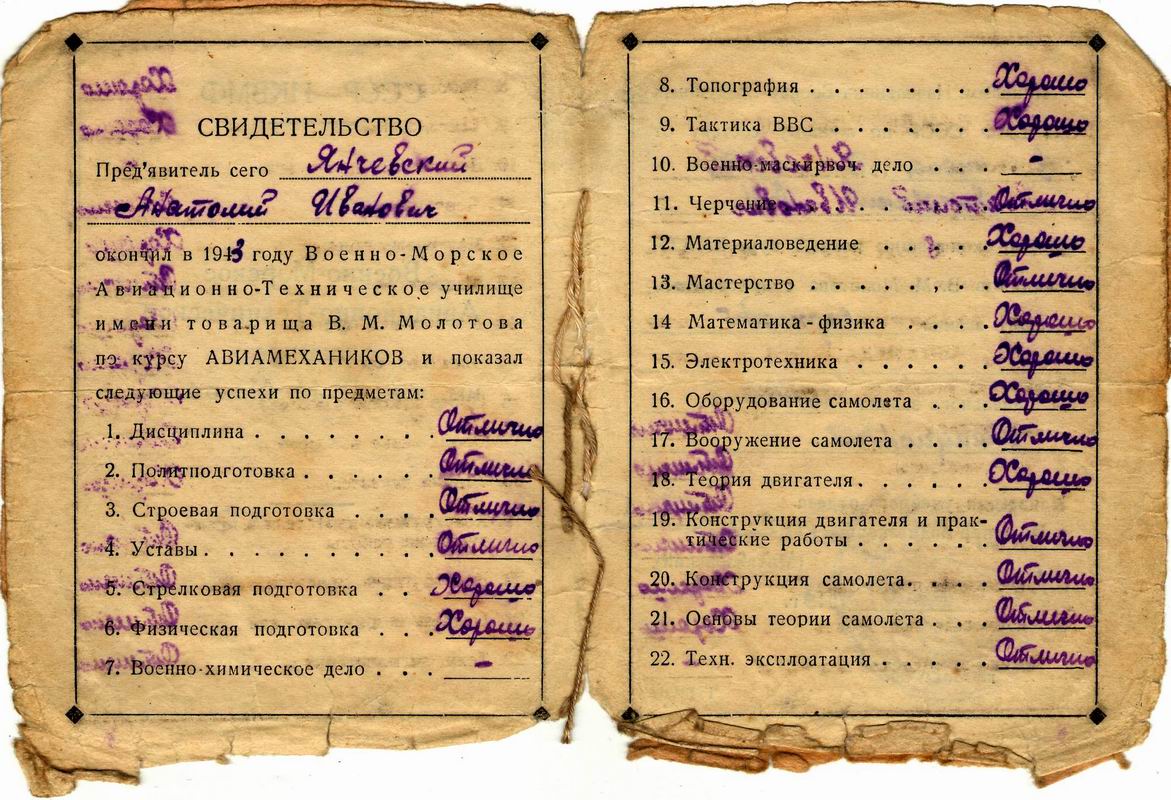 СВИДЕТЕЛЬСТВО
Пред'явитель сего Янчевский
Анатолий Иванович
окончил в 1943 году Военно-Морское
Авиационно-Техническое училище
имени товарища В. М. Молотова
по курсу АВИАМЕХАНИКОВ и показал
следующие успехи по предметам:
1. Дисциплина . . . . . . . . Отлично
2. Политподготовка . . . . . . Отлично
3. Строевая подготовка . . . . Отлично
4. Уставы . . . . . . . . . . Отлично
5. Стрелковая подготовка . . . Хорошо
6. Физическая подготовка . . . Хорошо
7. Военно-химическое дело . . . -
8. Топография . . . . . . . . Хорошо
9. Тактика ВВС . . . . . . . Хорошо
10. Военно-маскировоч. дело . . . -
11. Черчение . . . . . . . Отлично
12. Материаловедение . . . . . Хорошо
13. Мастерство . . . . . . . Отлично
14 Математика - физика . . . . Хорошо
15. Электротехника . . . . . . Хорошо
16. Оборудование самолета . . . Хорошо
17. Вооружение самолета . . . . Отлично
18. Теория двигателя . . . . . . Хорошо
19. Конструкция двигателя и прак-
тические работы . . . . . . Отлично
20. Конструкция самолета . . . . Отлично
21. Основы теории самолета . . . Отлично
22. Техн. эксплоатация . . . . . Отлично